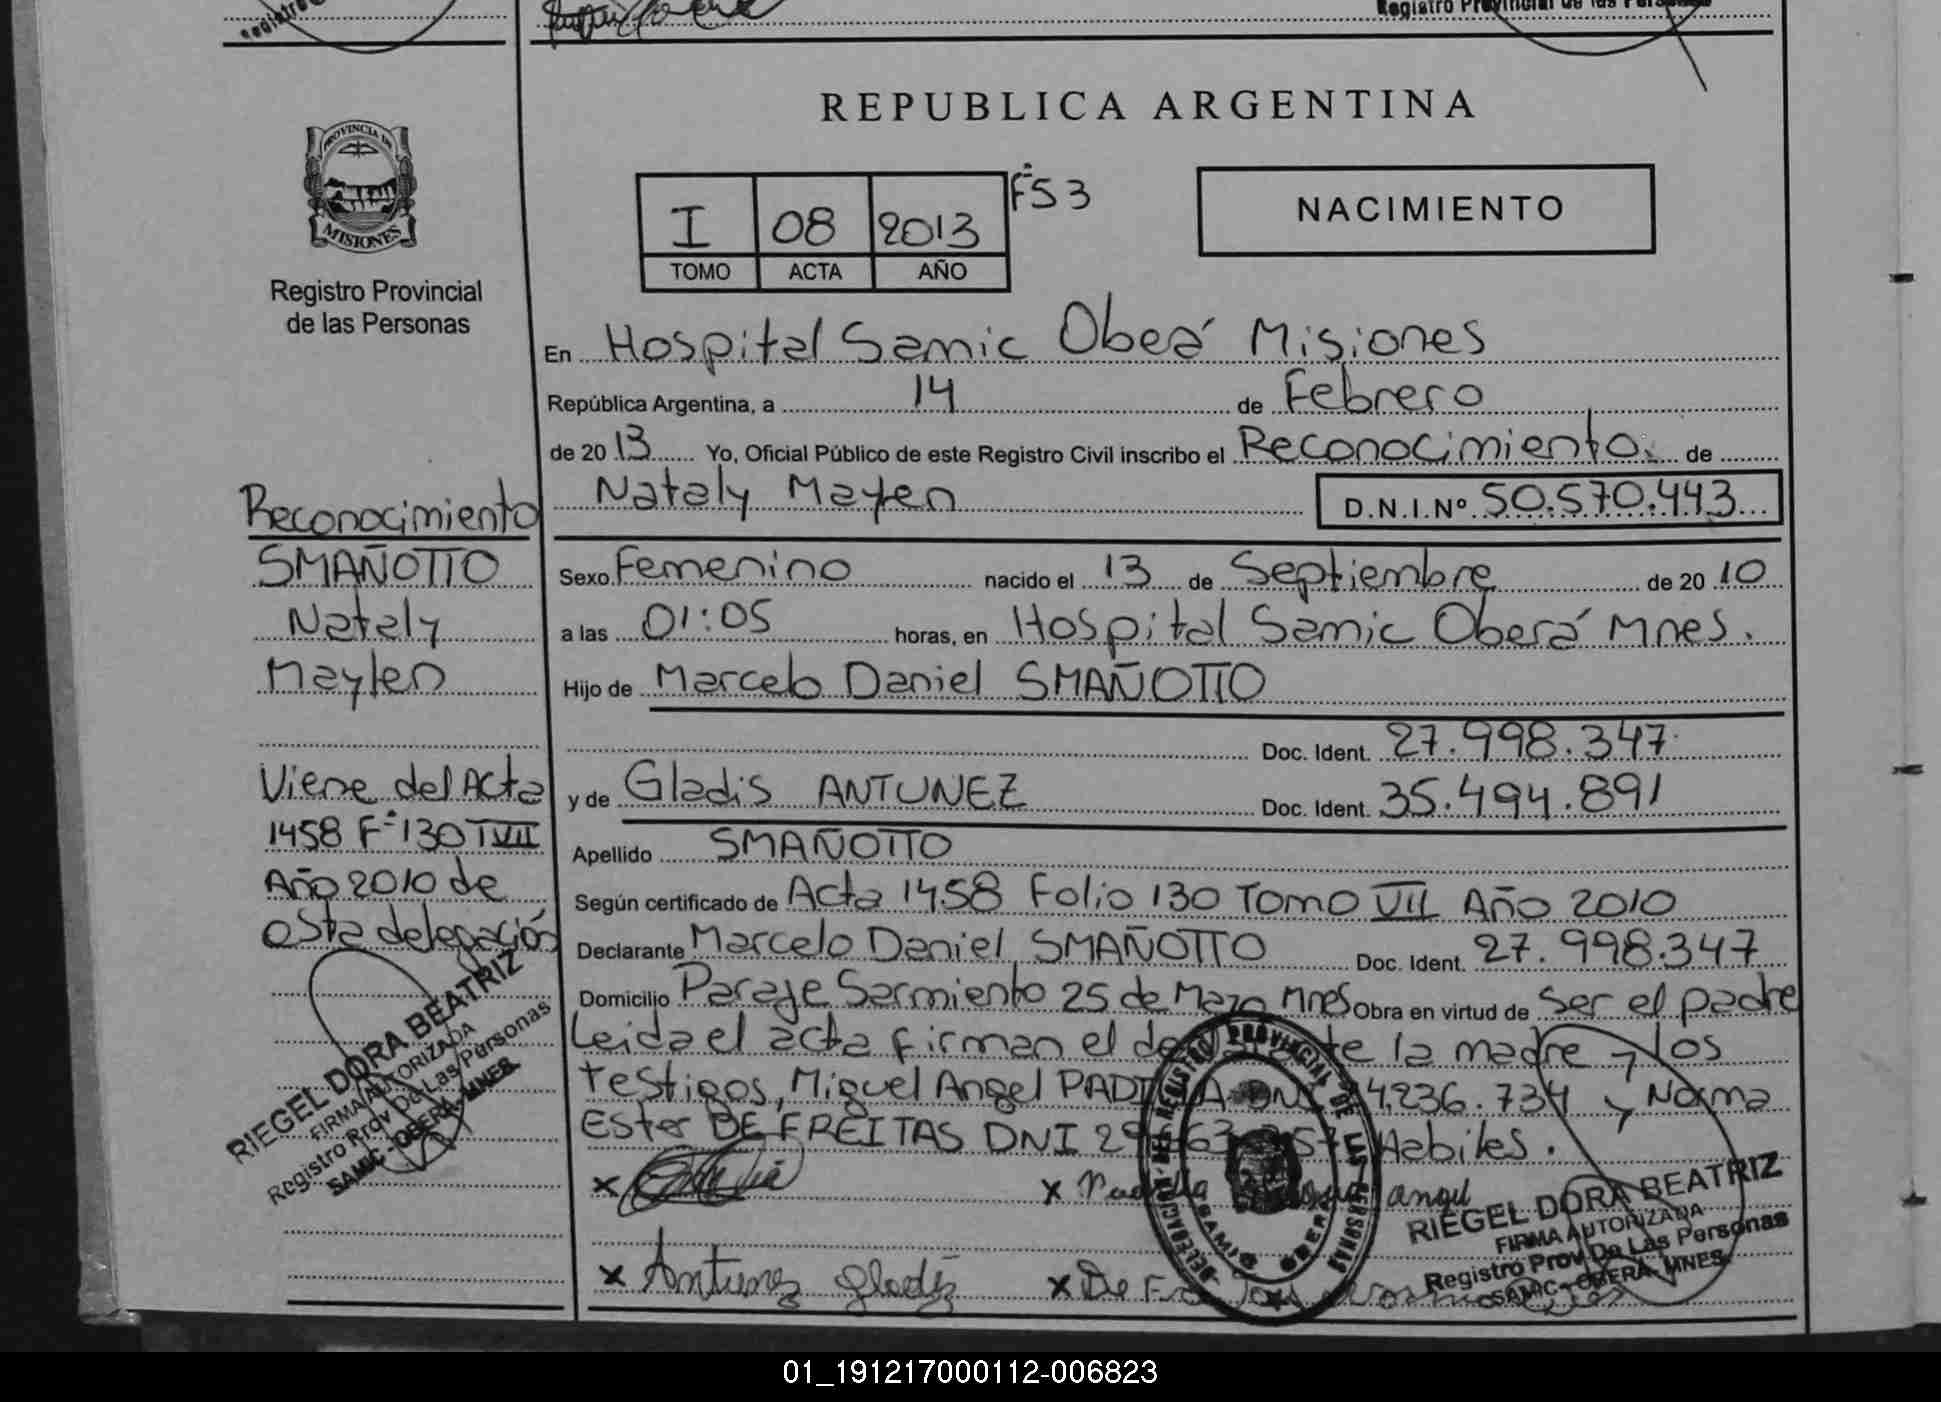 Registro Provincial de las Personas
REPUBLICA ARGENTINA
PROVINCIA DE
MISIONES
Registro Provincial
de las Personas
I 08 2013 Fº53
TOMO ACTA AÑO
NACIMIENTO
En Hospital Samic Oberá Misiones
República Argentina, a 14 de Febrero
de 2013 Yo, Oficial Público de este Registro Civil inscribo el Reconocimiento. de
Nataly Maylen D.N.I.Nº 50.570.443
Reconocimiento
SMAÑOTTO
Nataly
Maylen
Viene del Acta
1458 Fº130 TVII
Año 2010 de
esta delegación
RIEGEL DORA BEATRIZ
FIRMA AUTORIZADA
Registro Prov De Las Personas
SAMIC - OBERA - MNES
Sexo Femenino nacido el 13 de Septiembre de 2010
a las 01:05 horas, en Hospital Samic Oberá Mnes.
Hijo de Marcelo Daniel SMAÑOTTO
Doc. Ident. 27.998.347
y de Gladis ANTUNEZ Doc. Ident. 35.494.891
Apellido SMAÑOTTO
Según certificado de Acta 1458 Folio 130 Tomo VII Año 2010
Declarante Marcelo Daniel SMAÑOTTO Doc. Ident. 27.998.347
Domicilio Paraje Sarmiento 25 de Mayo Mnes Obra en virtud de Ser el padre
Leida el acta firman el la madre y los
testigos, Miguel Angel y Norma
Ester DE FREITAS DNI Habiles.
x x angel
x Antunez gladiz x De
DELEGACION DEL REGISTRO PROVINCIAL DE LAS PERSONAS
SAMIC OBERA
RIEGEL DORA BEATRIZ
FIRMA AUTORIZADA
Registro Prov De Las Personas
SAMIC - OBERA - MNES
01_191217000112-006823